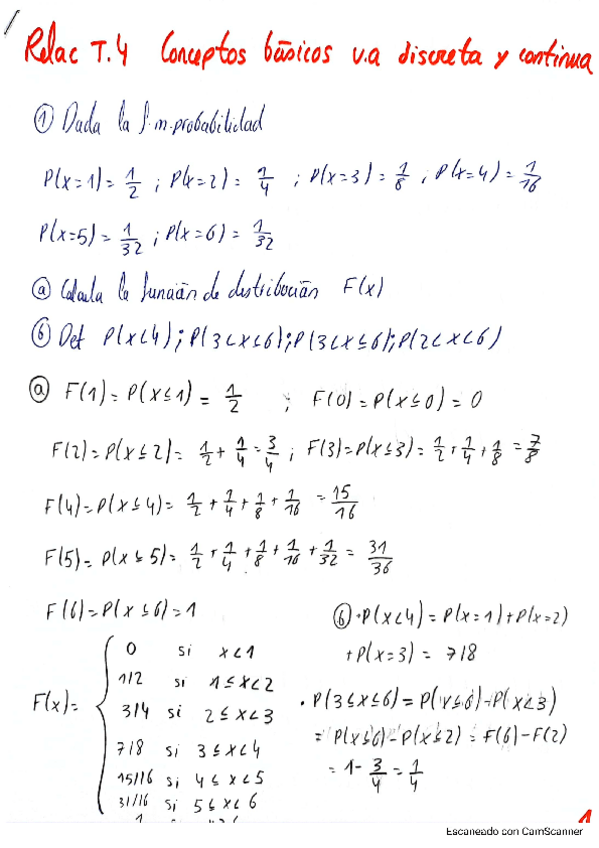 Relac T.4 Conceptos básicos v.a discreta y continua
① Dada la f.m.probabilidad
P(x=1)= 1/2 ; P(x=2)= 1/4 ; P(x=3)= 1/8 ; P(x=4)= 1/16
P(x=5)= 1/32 ; P(x=6)= 1/32
ⓐ Calcula la función de distribución F(x)
ⓑ Det P(x<4); P(3<x≤6); P(3<x≤6); P(2<x<6)
ⓐ F(1)= P(x≤1) = 1/2 ; F(0)=P(x≤0)=0
F(2)=P(x≤2)= 1/2 + 1/4 = 3/4 ; F(3)=P(x≤3)= 1/2 + 1/4 + 1/8 = 7/8
F(4)=P(x≤4)= 1/2 + 1/4 + 1/8 + 1/16 = 15/16
F(5)= P(x≤5)= 1/2 + 1/4 + 1/8 + 1/16 + 1/32 = 31/36
F(6)=P(x≤6)=1
F(x)=
0 si x<1
1/2 si 1≤x<2
3/4 si 2≤x<3
7/8 si 3≤x<4
15/16 si 4≤x<5
31/16 si 5≤x<6
ⓑ · P(x<4) = P(x=1)+P(x=2)
+P(x=3) = 7/8
· P(3≤x≤6)= P(x≤6)-P(x<3)
= P(x≤6)-P(x≤2) = F(6)-F(2)
= 1- 3/4 = 1/4
1
Escaneado con CamScanner